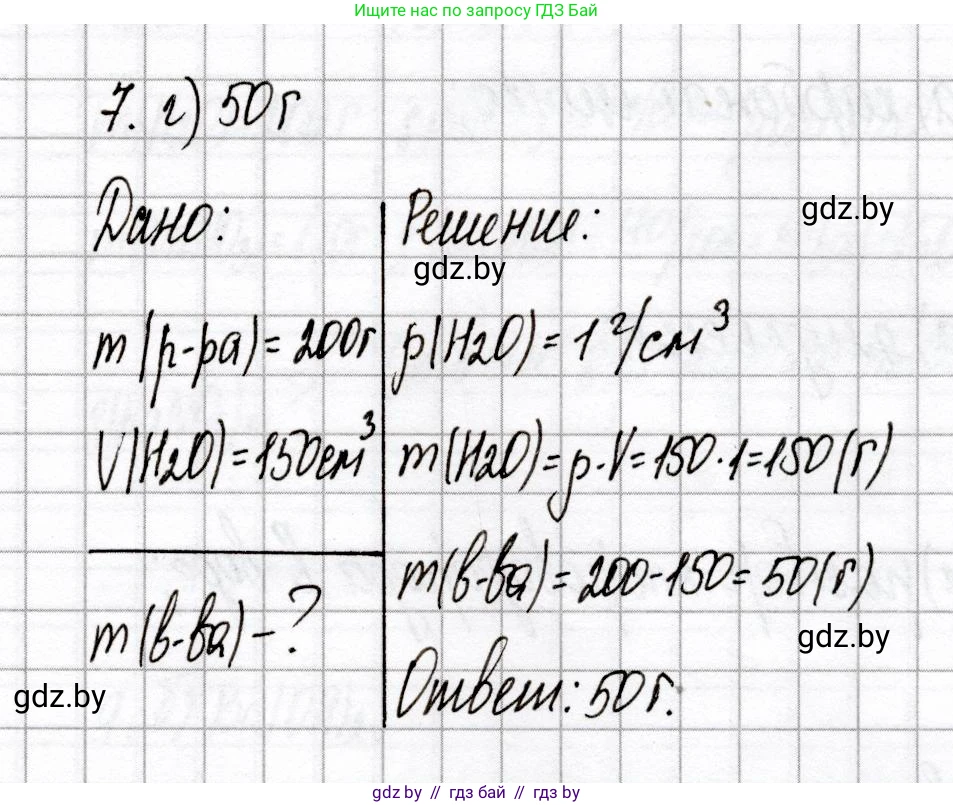 Ищите нас по запросу ГДЗ Бай
7. г) 50 г
Дано:
m(р-ра) = 200г
V(H2O) = 150см³
m(в-ва) - ?
Решение:
p(H2O) = 1 г/см³
m(H2O) = p·V = 150·1 = 150 (г)
m(в-ва) = 200 - 150 = 50 (г)
Ответ: 50 г.
gdz.by
gdz.by
gdz.by
gdz.by
gdz.by // гдз бай // гдз by